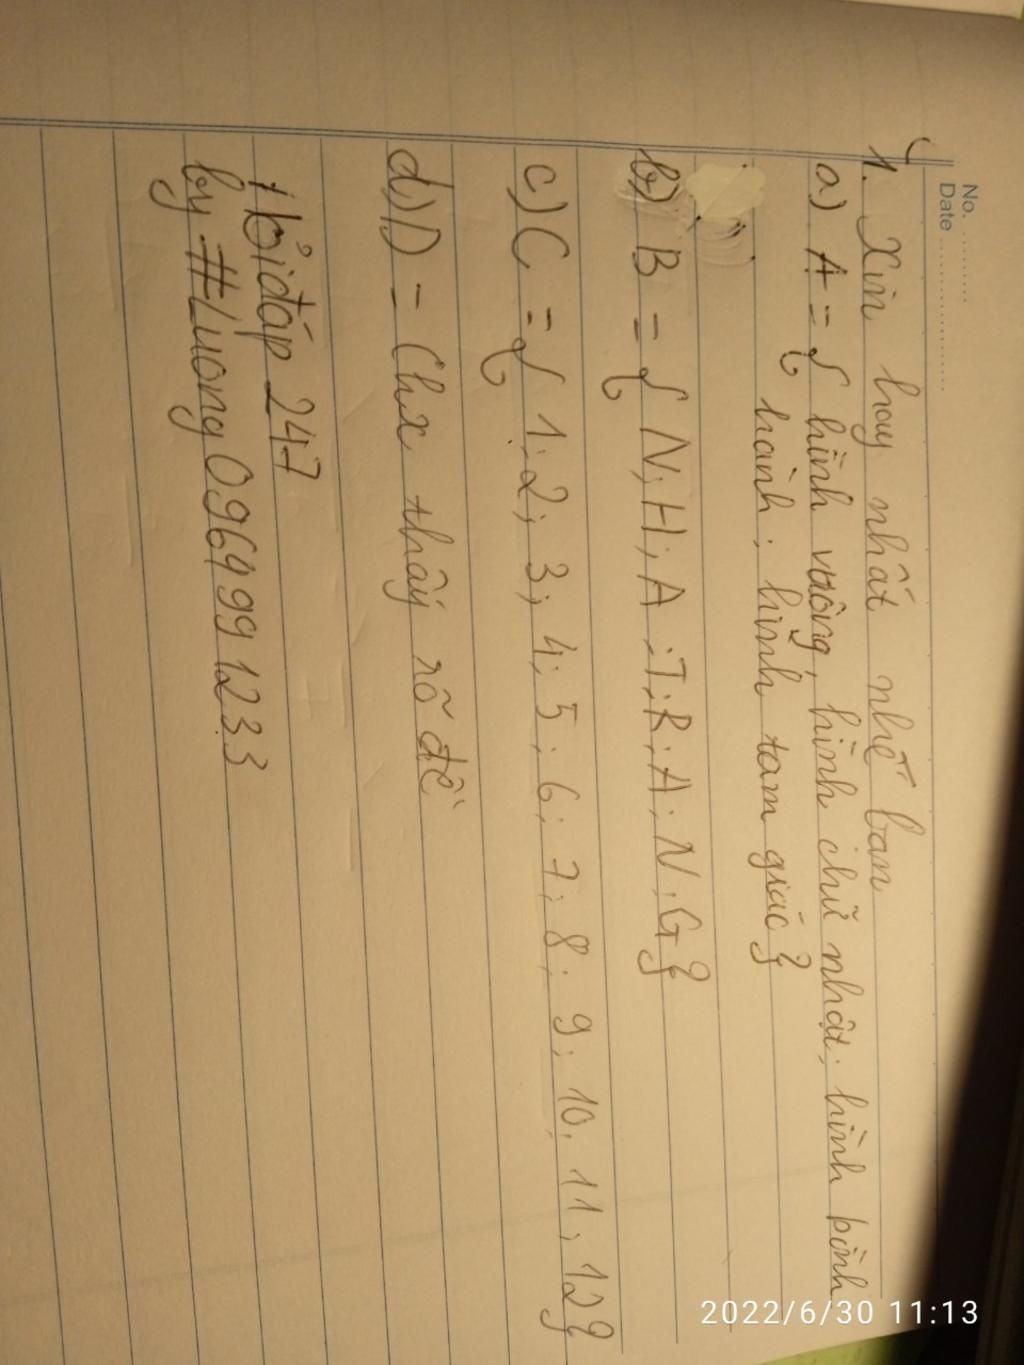 No. ..........
Date .....................
1. Xin hay nhất nhé bạn
a) A = { hình vuông, hình chữ nhật; hình bình
hành; hình tam giác }
b) B = { N; H; A; T; R; A; N; G }
c) C = { 1; 2; 3; 4; 5; 6; 7; 8; 9; 10; 11; 12 }
d) D = Chx thấy rõ đề
247
by #Luong 0964991233
2022/6/30 11:13